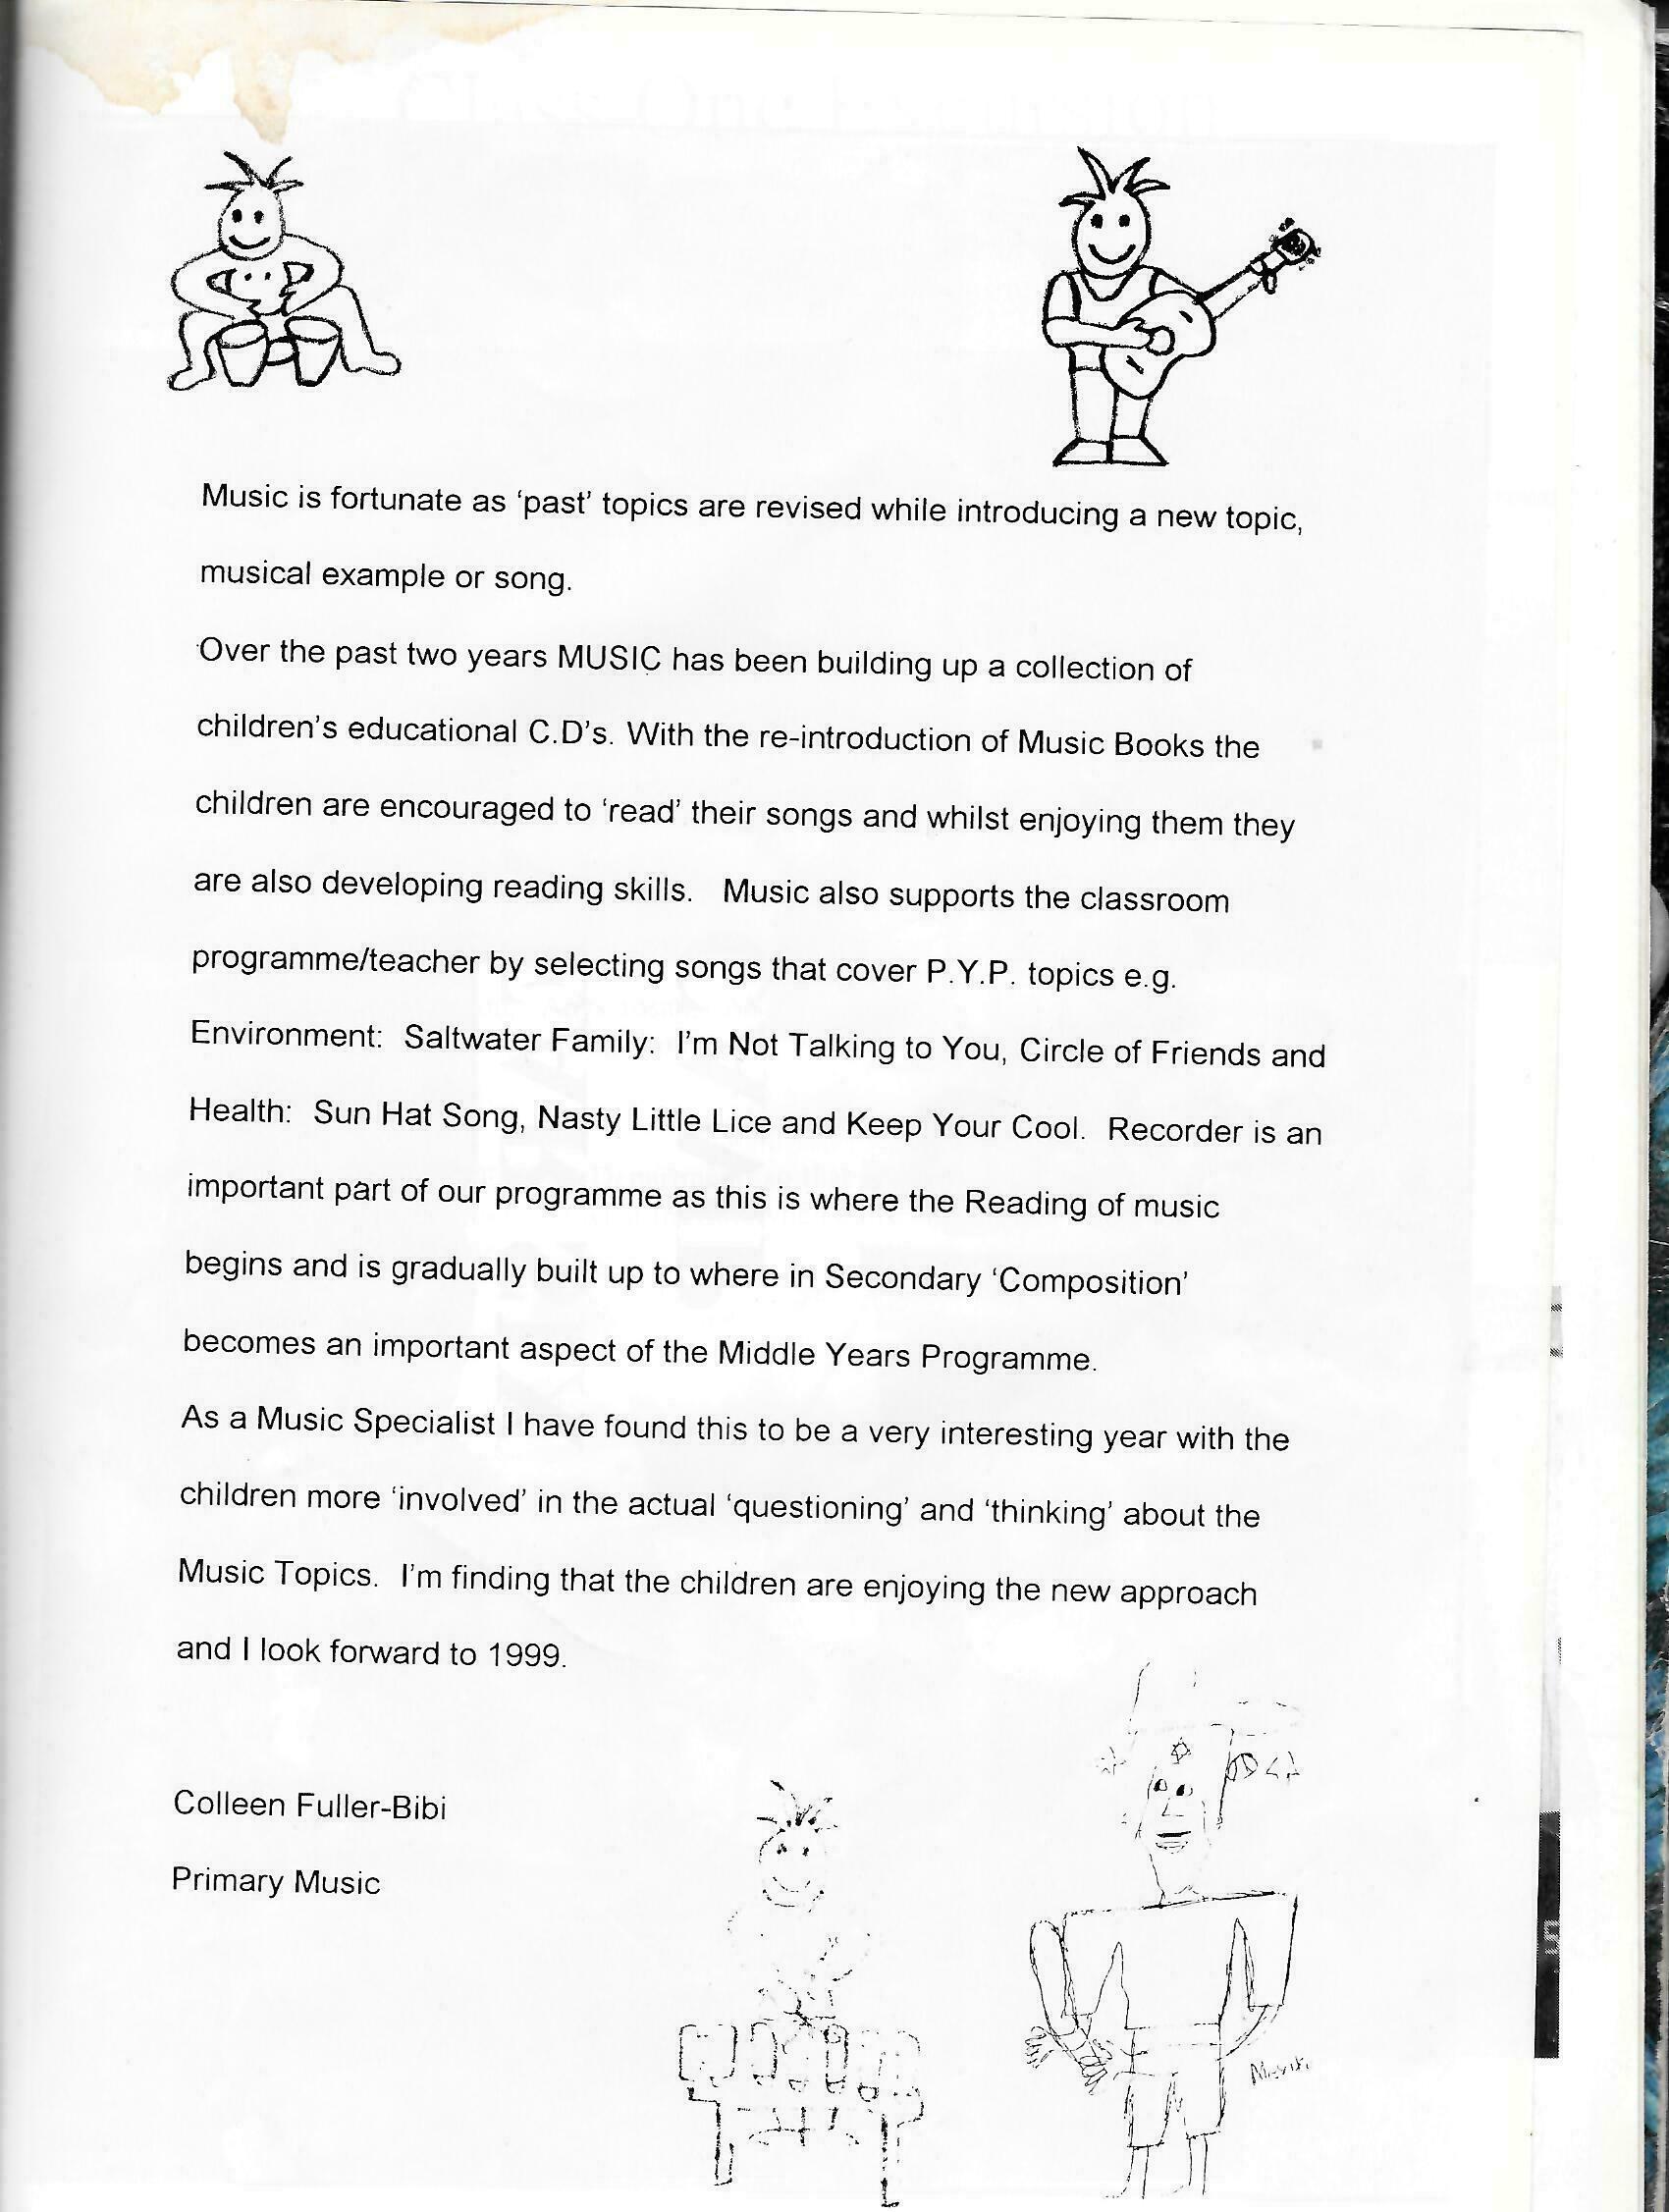 Music is fortunate as ‘past’ topics are revised while introducing a new topic,
musical example or song.
Over the past two years MUSIC has been building up a collection of
children’s educational C.D’s. With the re-introduction of Music Books the
children are encouraged to ‘read’ their songs and whilst enjoying them they
are also developing reading skills. Music also supports the classroom
programme/teacher by selecting songs that cover P.Y.P. topics e.g.
Environment: Saltwater Family: I’m Not Talking to You, Circle of Friends and
Health: Sun Hat Song, Nasty Little Lice and Keep Your Cool. Recorder is an
important part of our programme as this is where the Reading of music
begins and is gradually built up to where in Secondary ‘Composition’
becomes an important aspect of the Middle Years Programme.
As a Music Specialist I have found this to be a very interesting year with the
children more ‘involved’ in the actual ‘questioning’ and ‘thinking’ about the
Music Topics. I’m finding that the children are enjoying the new approach
and I look forward to 1999.
Colleen Fuller-Bibi
Primary Music